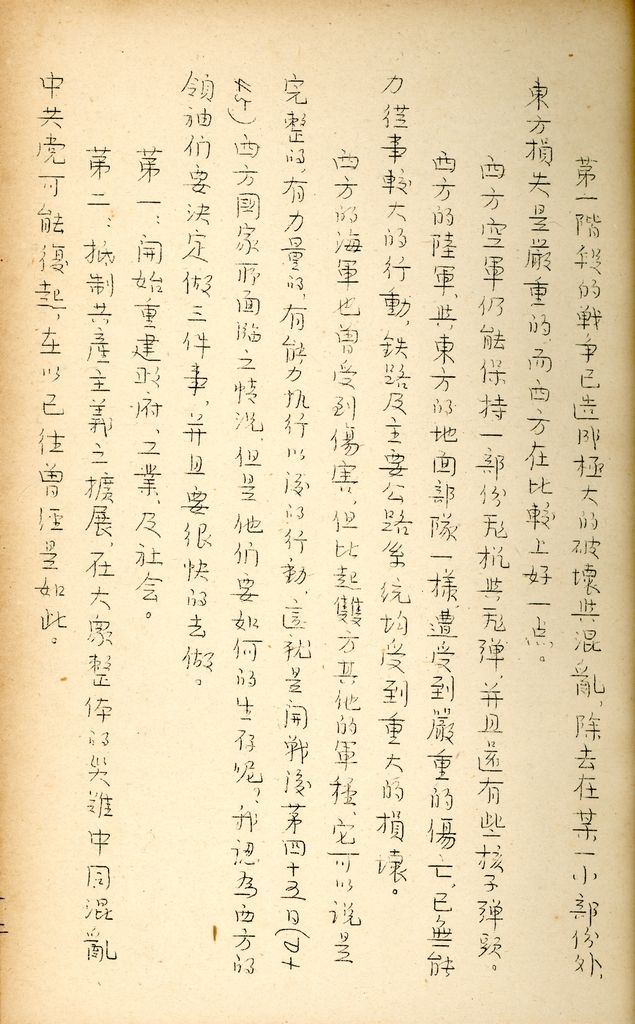 第一階段的戰爭已造成極大的破壞與混亂，除去在某一小部份外，
東方損失是嚴重的，而西方在比較上好一点。
西方空軍仍能保持一部份飛机與飛弹，并且還有些核子弹頭。
西方的陸軍，與東方的地面部隊一樣，遭受到嚴重的傷亡，已無能
力從事較大的行動，鉄路及主要公路系統均受到重大的損壞。
西方的海軍也曾受到傷害，但比起雙方其他的軍種，它可以說是
完整的，有力量的，有能力执行以後的行動，這就是開戰後第四十五日(D+
45)西方國家所面臨之情況，但是他们要如何的生存呢？我認為西方的
領袖们要決定做三件事，并且要很快的去做。
第一：開始重建政府，工業，及社会。
第二：抵制共產主義之擴展，在大眾整体的災難中同混亂
中共党可能復起，在以已往曾經是如此。